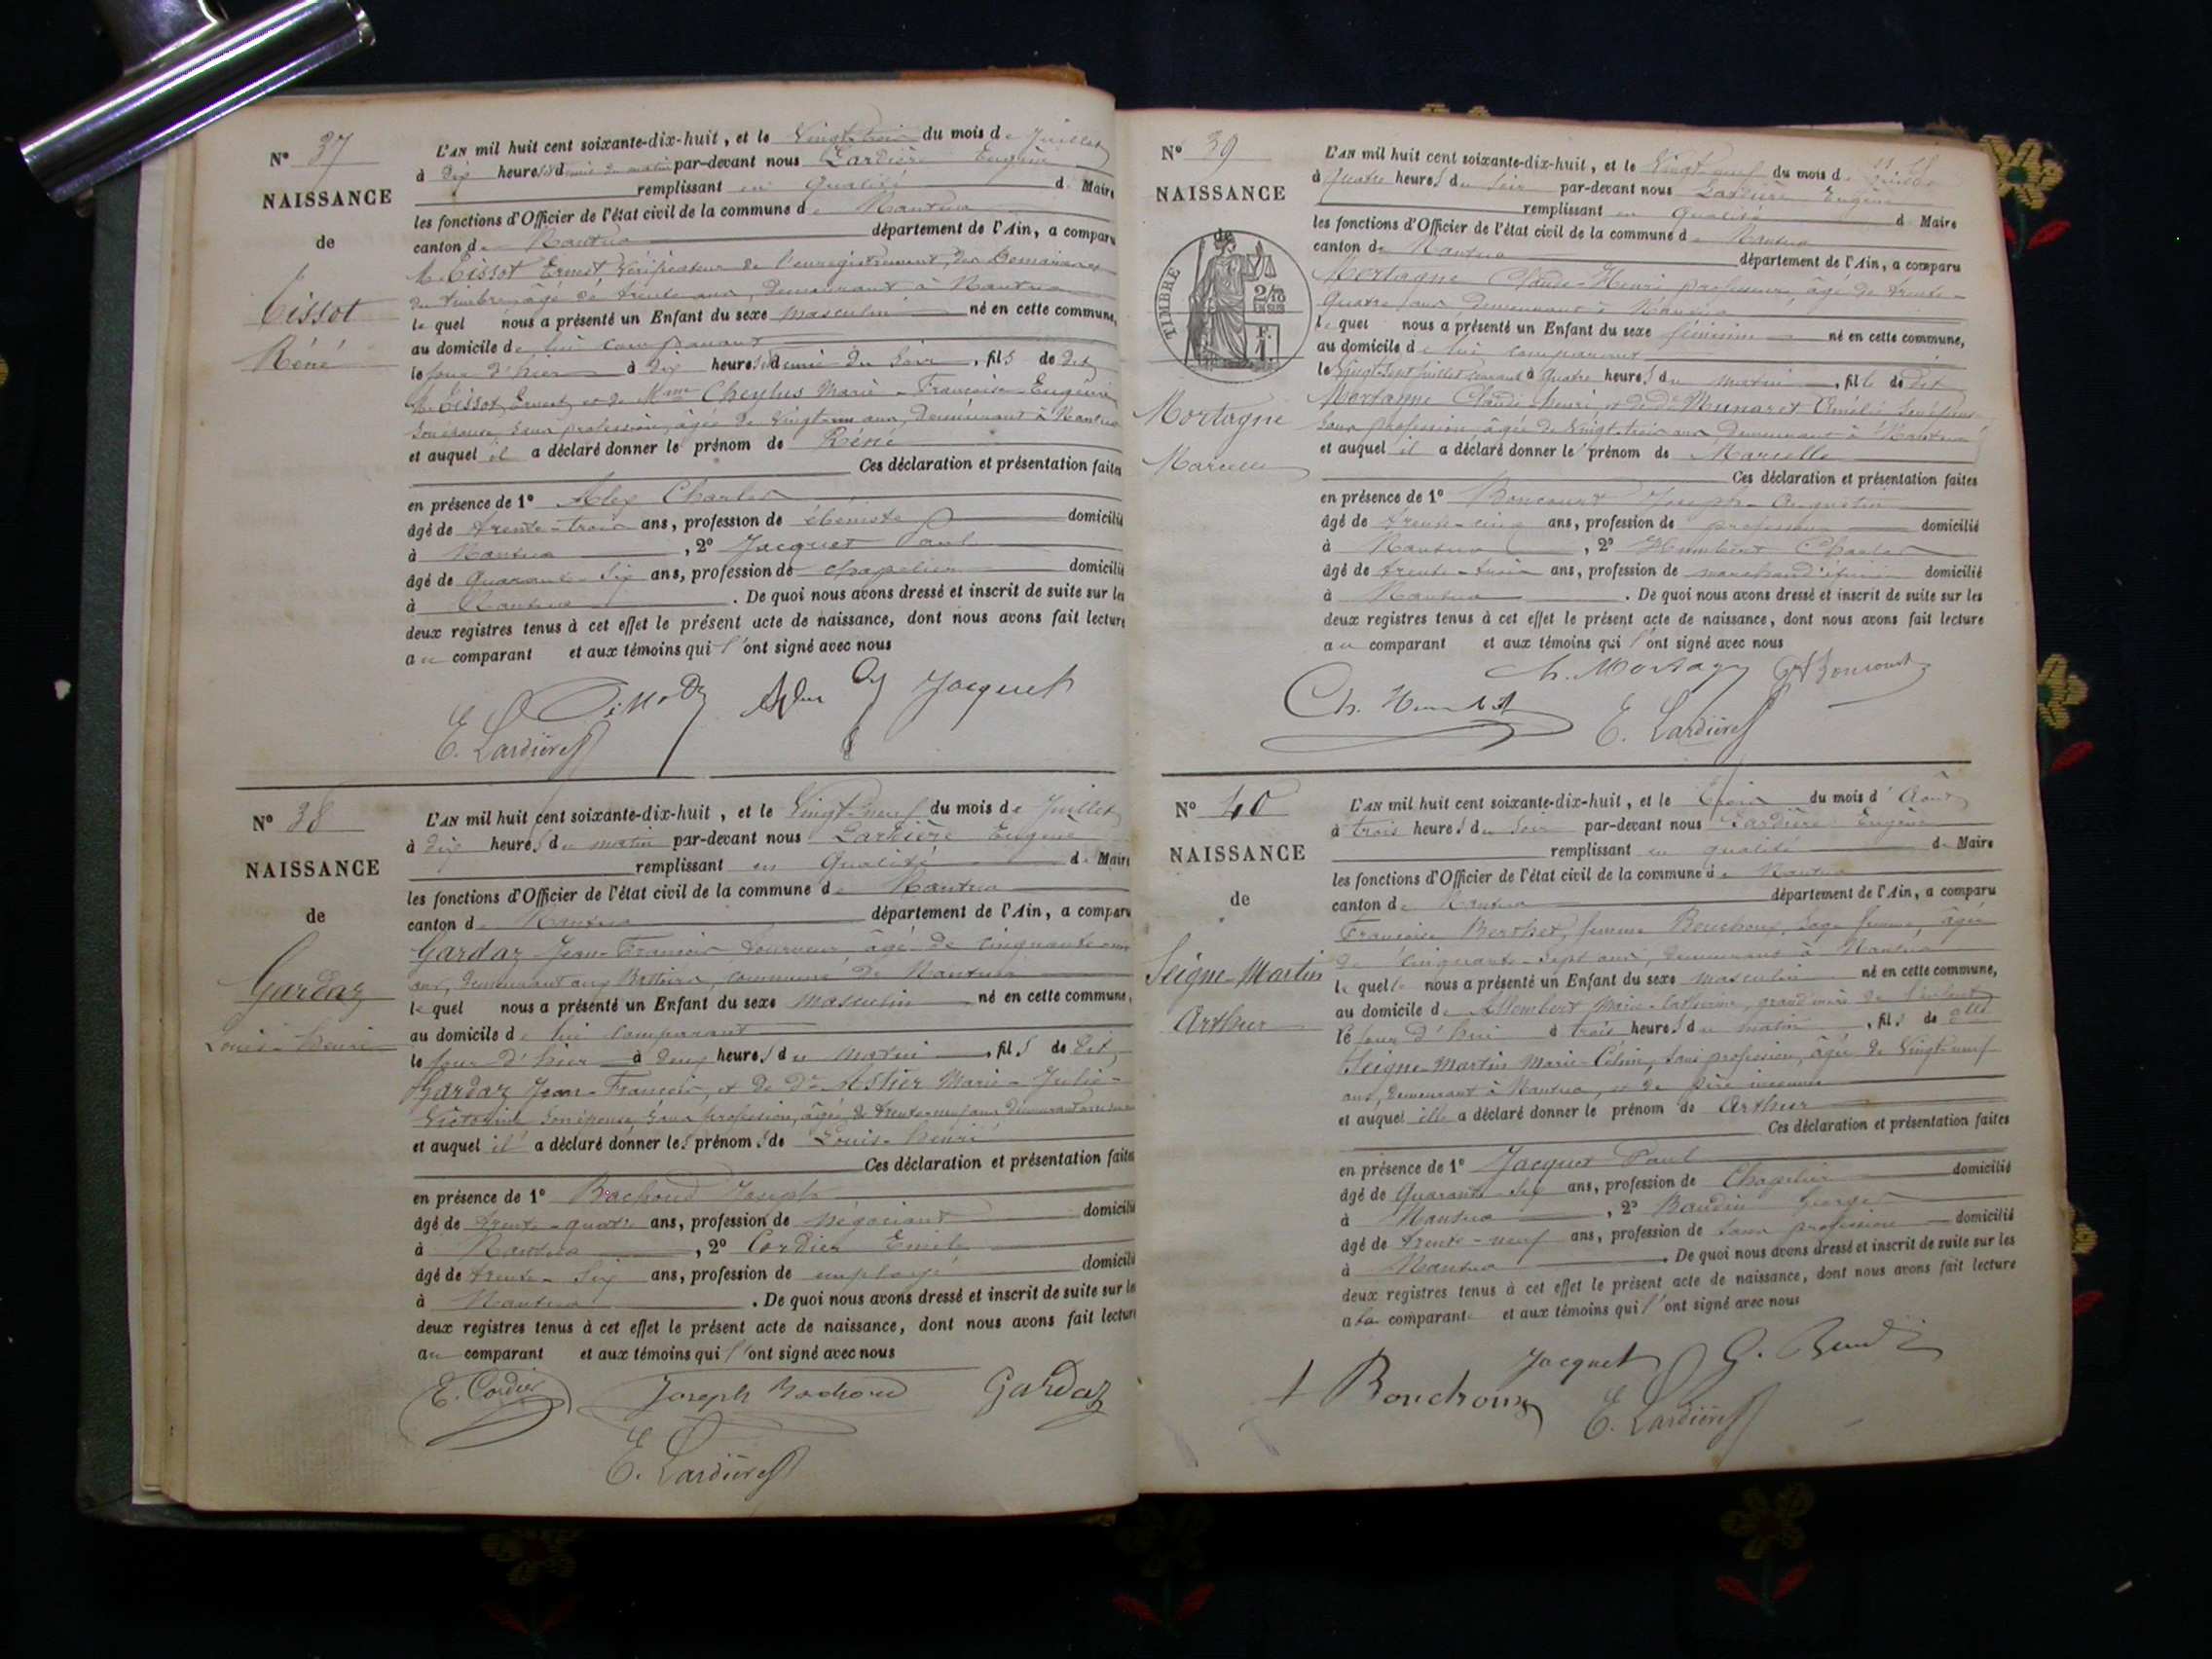 N° 37
NAISSANCE
de
Tissot
Réné
L'AN mil huit cent soixante-dix-huit, et le Vingt-trois du mois de Juillet
à Dix heures & demie du matin par-devant nous Lardière Eugène
remplissant en qualité de Maire
les fonctions d'Officier de l'état civil de la commune de Nantua
canton de Nantua département de l'Ain, a comparu
M. Tissot Ernest Vérificateur de l'enregistrement, des Domaines et
du timbre, âgé de trente ans, demeurant à Nantua
lequel nous a présenté un Enfant du sexe masculin né en cette commune,
au domicile de lui comparant
le jour d'hier à dix heures & demie du soir, fils de dit
M. Tissot Ernest, et de Mme Cheylus Marie-Françoise-Eugénie
son épouse, sans profession, âgée de vingt-un ans, demeurant à Nantua
et auquel il a déclaré donner le prénom de Réné
Ces déclaration et présentation faites
en présence de 1° Charles
âgé de trente-trois ans, profession de ébéniste domicilié
à Nantua, 2° Jacquet Paul
âgé de quarante-six ans, profession de chapelier domicilié
à Nantua. De quoi nous avons dressé et inscrit de suite sur les
deux registres tenus à cet effet le présent acte de naissance, dont nous avons fait lecture
au comparant et aux témoins qui l'ont signé avec nous
Jacquet
E. Lardière
N° 38
NAISSANCE
de
Gardaz
Louis-Henri
L'AN mil huit cent soixante-dix-huit, et le Vingt-neuf du mois de Juillet
à dix heures du matin par-devant nous Lardière Eugène
remplissant en qualité de Maire
les fonctions d'Officier de l'état civil de la commune de Nantua
canton de Nantua département de l'Ain, a comparu
Gardaz Jean-François tourneur, âgé de cinquante-un
ans, demeurant aux commune de Nantua
lequel nous a présenté un Enfant du sexe masculin né en cette commune,
au domicile de lui comparant
le jour d'hier à deux heures du matin, fils de dit
Gardaz Jean-François, et de De Astier Marie-Julie-
Victorine son épouse, sans profession, âgée de trente-neuf ans demeurant
et auquel il a déclaré donner les prénoms de Louis-Henri
Ces déclaration et présentation faites
en présence de 1° Bachoud Joseph
âgé de trente-quatre ans, profession de négociant domicilié
à Nantua, 2° Cordier Emile
âgé de trente-six ans, profession de employé domicilié
à Nantua. De quoi nous avons dressé et inscrit de suite sur les
deux registres tenus à cet effet le présent acte de naissance, dont nous avons fait lecture
au comparant et aux témoins qui l'ont signé avec nous
E. Cordier Joseph Bachoud Gardaz
E. Lardière
N° 39
NAISSANCE
de
TIMBRE
2/10 EN SUS
F. 1
Mortagne
Marcelle
L'AN mil huit cent soixante-dix-huit, et le Vingt-neuf du mois de Juillet
à quatre heures du soir par-devant nous Lardière Eugène
remplissant en qualité de Maire
les fonctions d'Officier de l'état civil de la commune de Nantua
canton de Nantua département de l'Ain, a comparu
Mortagne Claude-Henri professeur, âgé de trente-
quatre ans, demeurant à Nantua
lequel nous a présenté un Enfant du sexe féminin né en cette commune,
au domicile de lui comparant
le Vingt-sept juillet courant à quatre heures du matin, fille de dit
Mortagne Claude-Henri et de De Munaret Amélie son épouse
sans profession âgée de vingt-trois ans demeurant à Nantua
et auquel il a déclaré donner le prénom de Marcelle
Ces déclaration et présentation faites
en présence de 1° Boncourt Joseph-Augustin
âgé de trente-cinq ans, profession de professeur domicilié
à Nantua, 2° Humbert Charles
âgé de trente-trois ans, profession de marchand épicier domicilié
à Nantua. De quoi nous avons dressé et inscrit de suite sur les
deux registres tenus à cet effet le présent acte de naissance, dont nous avons fait lecture
au comparant et aux témoins qui l'ont signé avec nous
h. Mortagne Boncourt
Ch. Humbert E. Lardière
N° 40
NAISSANCE
de
Seigne-Martin
Arthur
L'AN mil huit cent soixante-dix-huit, et le Trois du mois d'Août
à trois heures du soir par-devant nous Lardière Eugène
remplissant en qualité de Maire
les fonctions d'Officier de l'état civil de la commune de Nantua
canton de Nantua département de l'Ain, a comparu
Françoise Berthet, femme Bouchoux, sage femme, âgée
de cinquante-sept ans, demeurant à Nantua
lequelle nous a présenté un Enfant du sexe masculin né en cette commune,
au domicile de Allombert Marie-Catherine, grand'mère de l'enfant
le jour d'hui à trois heures du matin, fils de
Seigne-Martin Marie-Céline, sans profession, âgée de vingt-neuf
ans, demeurant à Nantua, et de père inconnu
et auquel elle a déclaré donner le prénom de Arthur
Ces déclaration et présentation faites
en présence de 1° Jacquet Paul
âgé de quarante-six ans, profession de Chapelier domicilié
à Nantua, 2° Baudin Georges
âgé de trente-neuf ans, profession de sans profession domicilié
à Nantua. De quoi nous avons dressé et inscrit de suite sur les
deux registres tenus à cet effet le présent acte de naissance, dont nous avons fait lecture
a la comparante et aux témoins qui l'ont signé avec nous
Jacquet G. Baudin
f Bouchoux E. Lardière